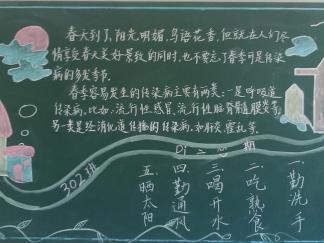 春天到了,阳光明媚,鸟语花香,但就在人们尽
情享受春天美好景致的同时,也不要忘了春季可是传染
病的多发季节。
春季容易发生的传染病主要有两类:一是呼吸道
传染病,比如:流行性感冒,流行性脑脊髓膜炎等
另一类是经消化道传播的传染病,如肝炎、霍乱等。
第二期
302班
一:勤洗手
二:吃熟食
三:喝开水
四:勤通风
五:晒太阳